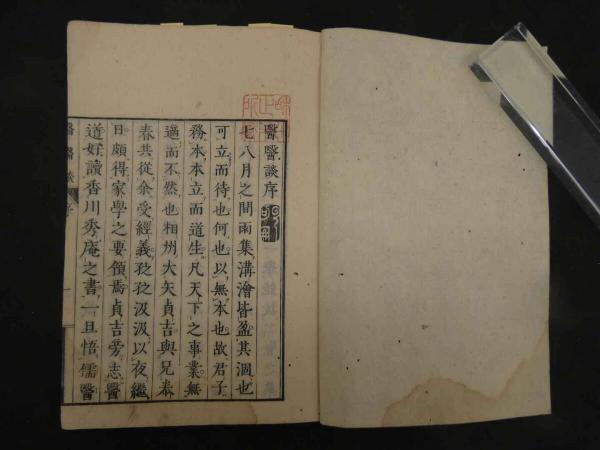 醫醫談序
七八月之間雨集溝澮皆盈其涸也
可立而待也何也以無本也故君子
務本本立而道生凡天下之事業無
適而不然也相州大矢貞吉與兄泰
春共從余受經義孜孜汲汲以夜繼
日頗得家學之要領焉貞吉旁志醫
道好讀香川秀庵之書一旦悟儒醫
醫醫談 序 一